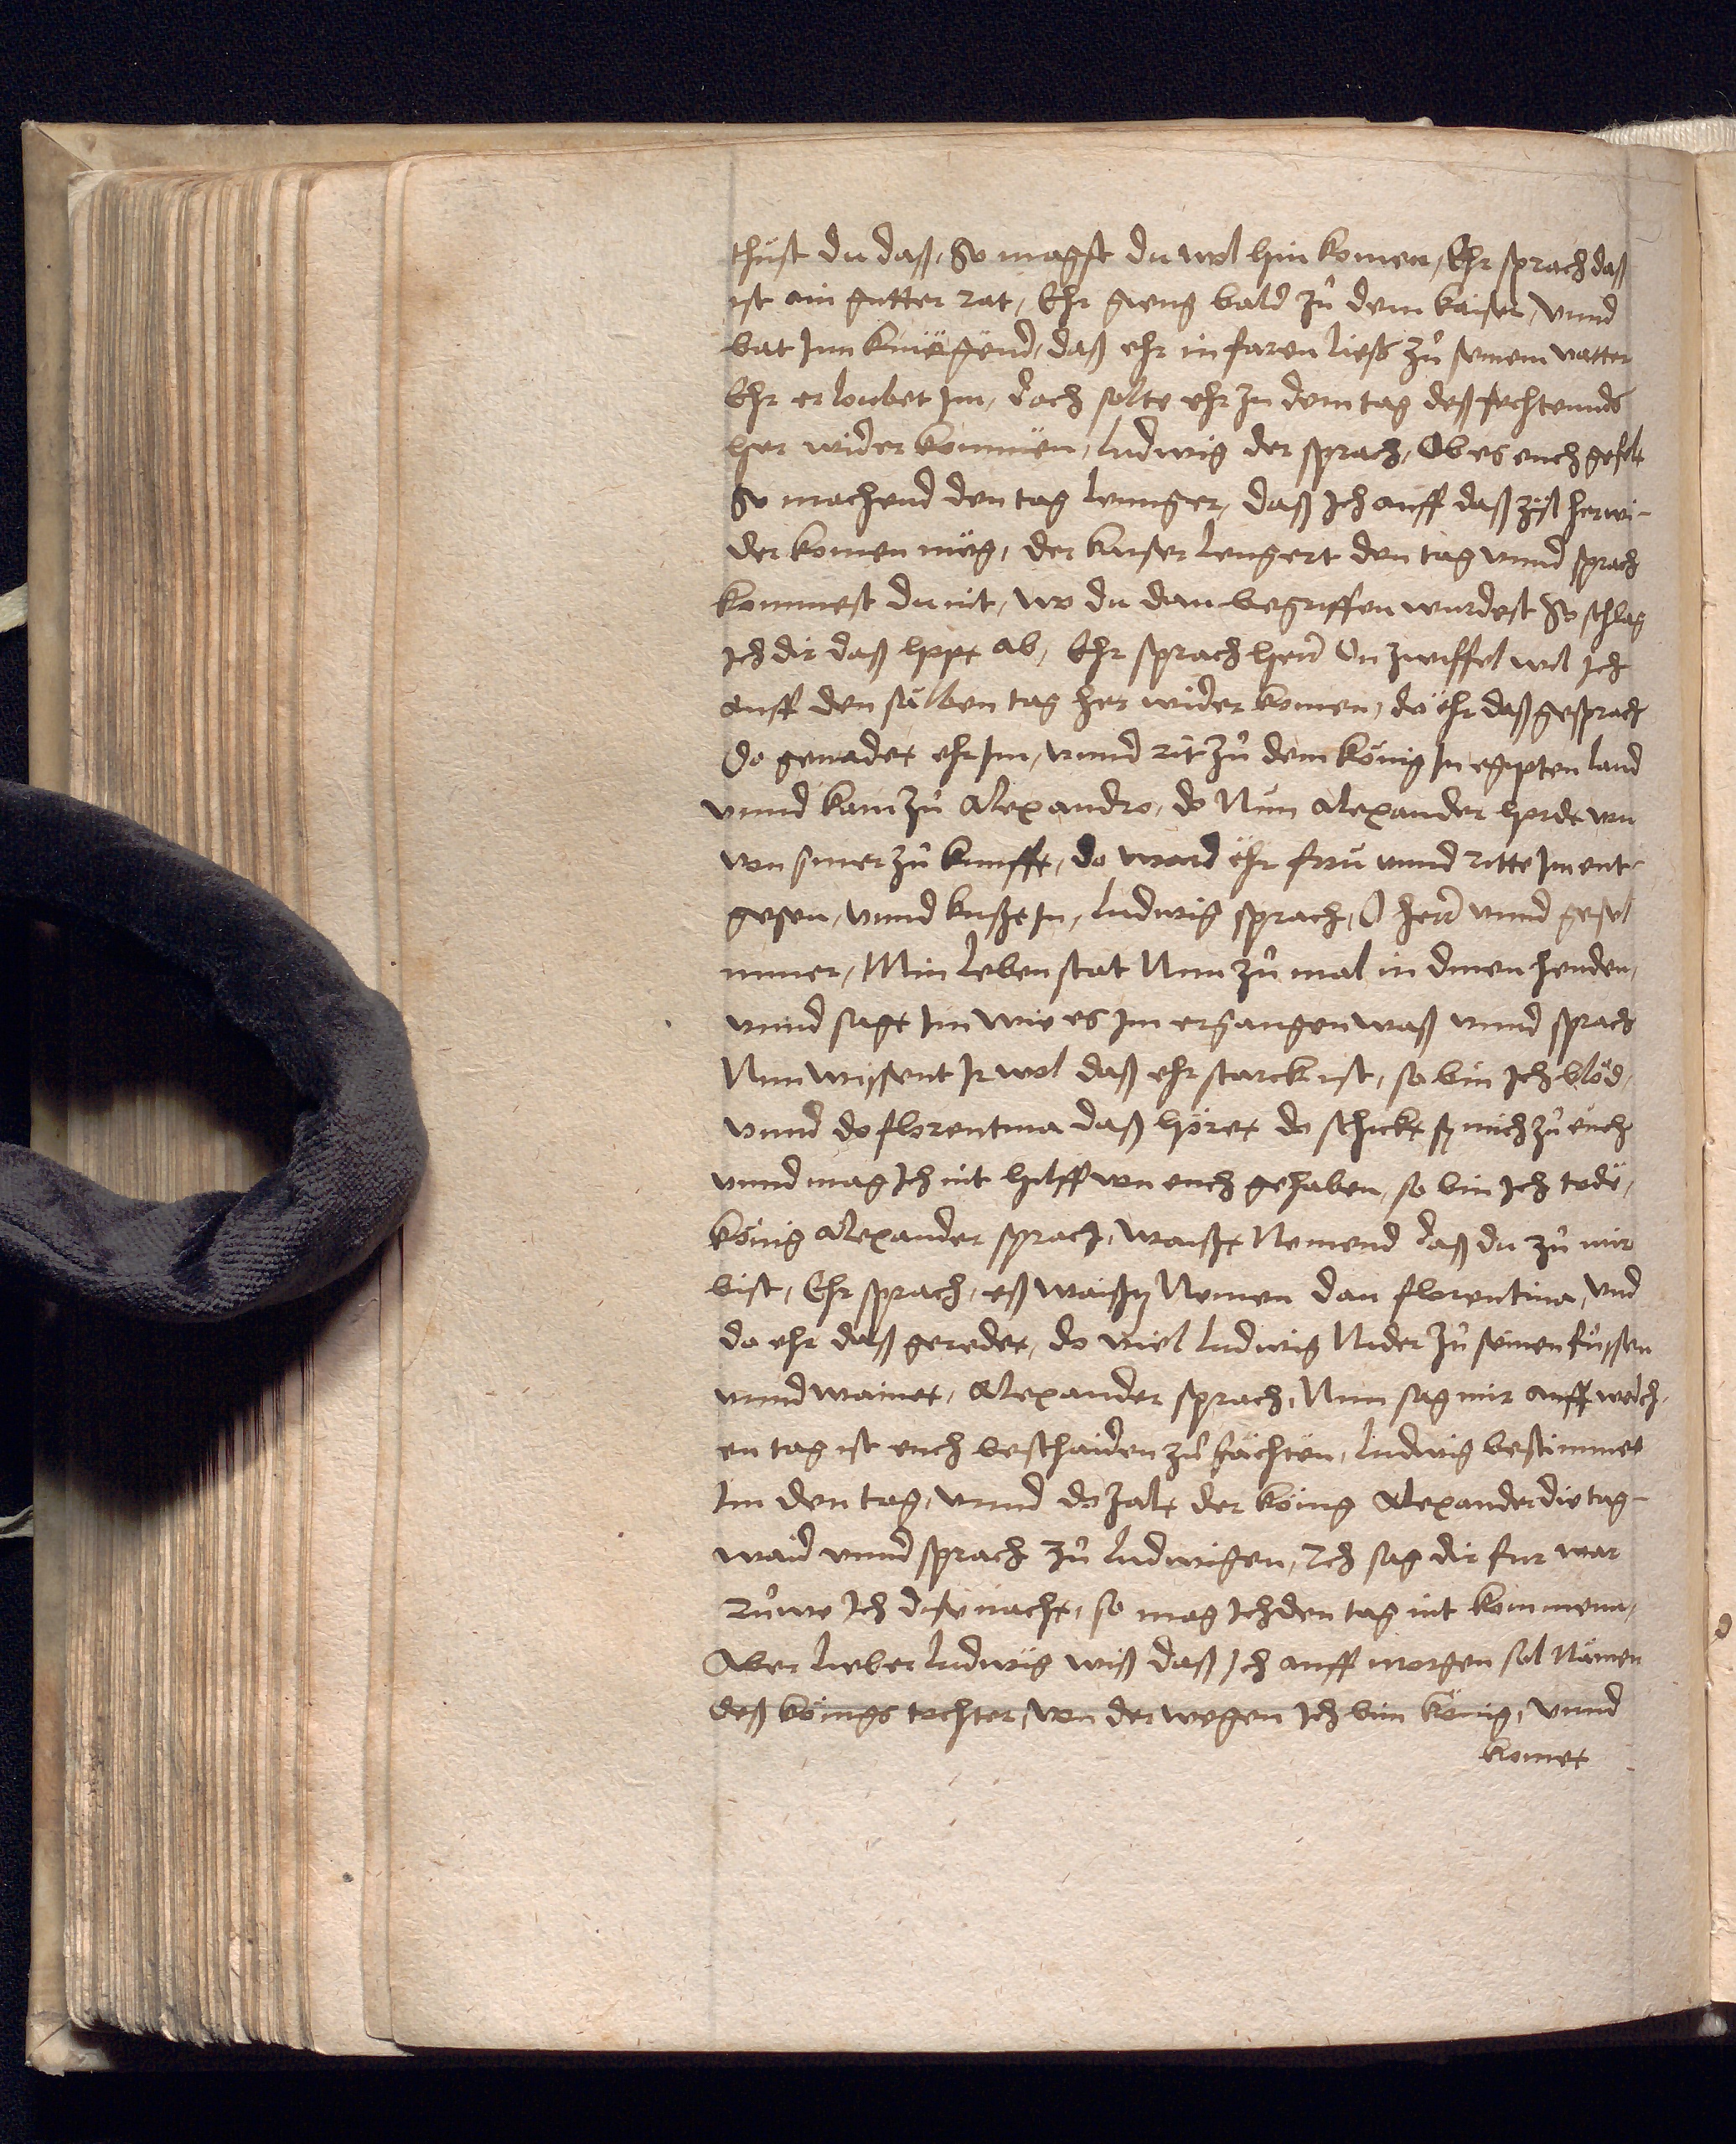 thust du daß, So magst du wol hin komen, Ehr sprach daß
ist ain gutter rat, Ehr gieng bald zů dem kaiser, vnnd
bat Inn knüigend, daß ehr in faren ließ zů seinem vatter
Ehr erloubet Im, doch solte ehr zu dem tag deß fechtennds
her wider kommen, ludwig der sprach, Ob es euch gefelt
So machend den tag lennger, daß Ich auff daß zyl herwi-
der komen müg, der kaiser lengert den tag vnnd sprach
kommest du nit, wo du dan begriffen wurdest So schlag
Ich dir daß hppt ab, Ehr sprach herr On zwiffel wil Ich
auff den sälben tag her wider komen, do ehr daß gesprach
Do genadet ehr Im, vnnd rit zů dem könig In egipten land
vnnd kam zů Alexandro, do Nun Alexander horde von
von siner zů kunfft, do ward ehr fro vnnd ritte Im ent-
gegen, vnnd kußt In, ludwig sprach, O herr vnnd gesel
miner, Min leben stat Nun zů mal in dinen henden,
vnnd sagt Im wie es Im ergangen waß vnnd sprach
Nun wissent Ir wol daß ehr starck ist, so bin Ich blöd,
vnnd do florentina daß höret do schickt sy mich zů euch
vnnd mag Ich nit hilff von euch gehaben, so bin Ich tode,
könig Alexander sprach, waißt Niemend daß du zů mir
bist, Ehr sprach, eß waißt Niemen dan florentina, vnd
do ehr daß geredet, do viel ludwig Nider zů seinen füssen
vnnd wainet, Alexander sprach, Nun sag mir auff welch-
en tag ist euch beschaiden zů fächten, ludwig bestimmet
Im den tag, vnnd do zalt der könig Alexander die tag-
waid vnnd sprach zů ludwigen, Ich sag dir fur war
Růwe Ich dise nacht, so mag Ich den tag nit kommenn,
Aber lieber ludwig wiß daß Ich auff morgen sol Nämen
deß königs tochter, von der wegen Ich bin könig, vnnd
komet